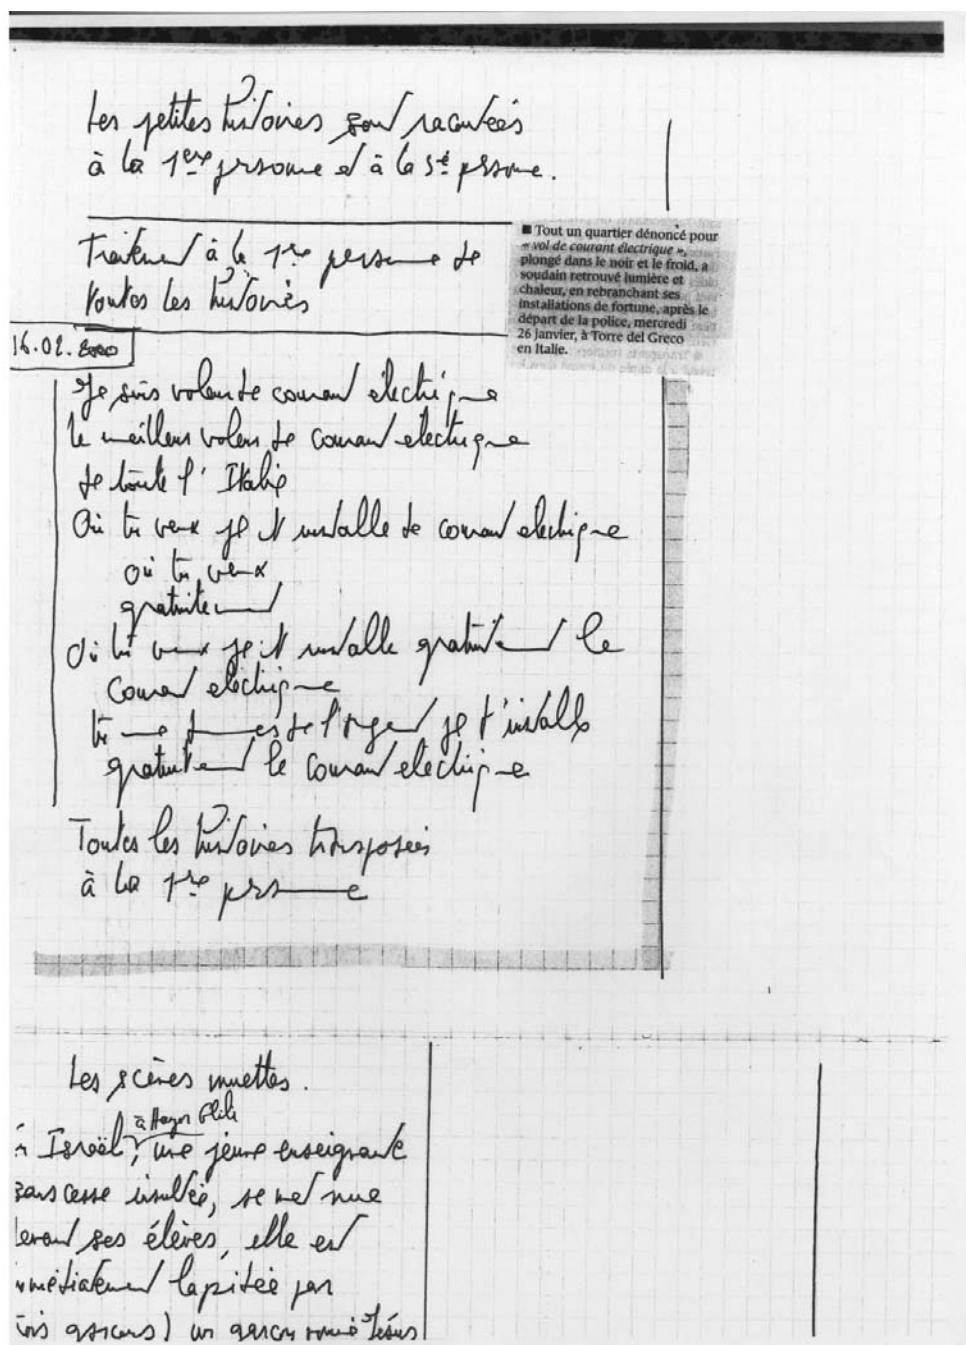 Les petites histoires sont racontées
à la 1ère personne et à la 3è personne.
Traitement à la 1re personne de
toutes les histoires
■ Tout un quartier dénoncé pour
« vol de courant électrique »,
plongé dans le noir et le froid, a
soudain retrouvé lumière et
chaleur, en rebranchant ses
installations de fortune, après le
départ de la police, mercredi
26 janvier, à Torre del Greco
en Italie.
16.02.2000
Je suis voleur de courant électrique
le meilleur voleur de courant electrique
de toute l'Italie
Où tu veux je t'installe le courant electrique
où tu veux
gratuitement
Où tu veux je t'installe gratuitement le
courant electrique
tu me donnes de l'argent je t'installe
gratuitement le courant electrique
Toutes les histoires transposées
à la 1re personne
Les scènes muettes.
Israël, une jeune enseignante
à Hazor
sans cesse insultée, se met nue
devant ses élèves, elle est
immédiatement lapidée par
garçons) un garçon nommé Jésus